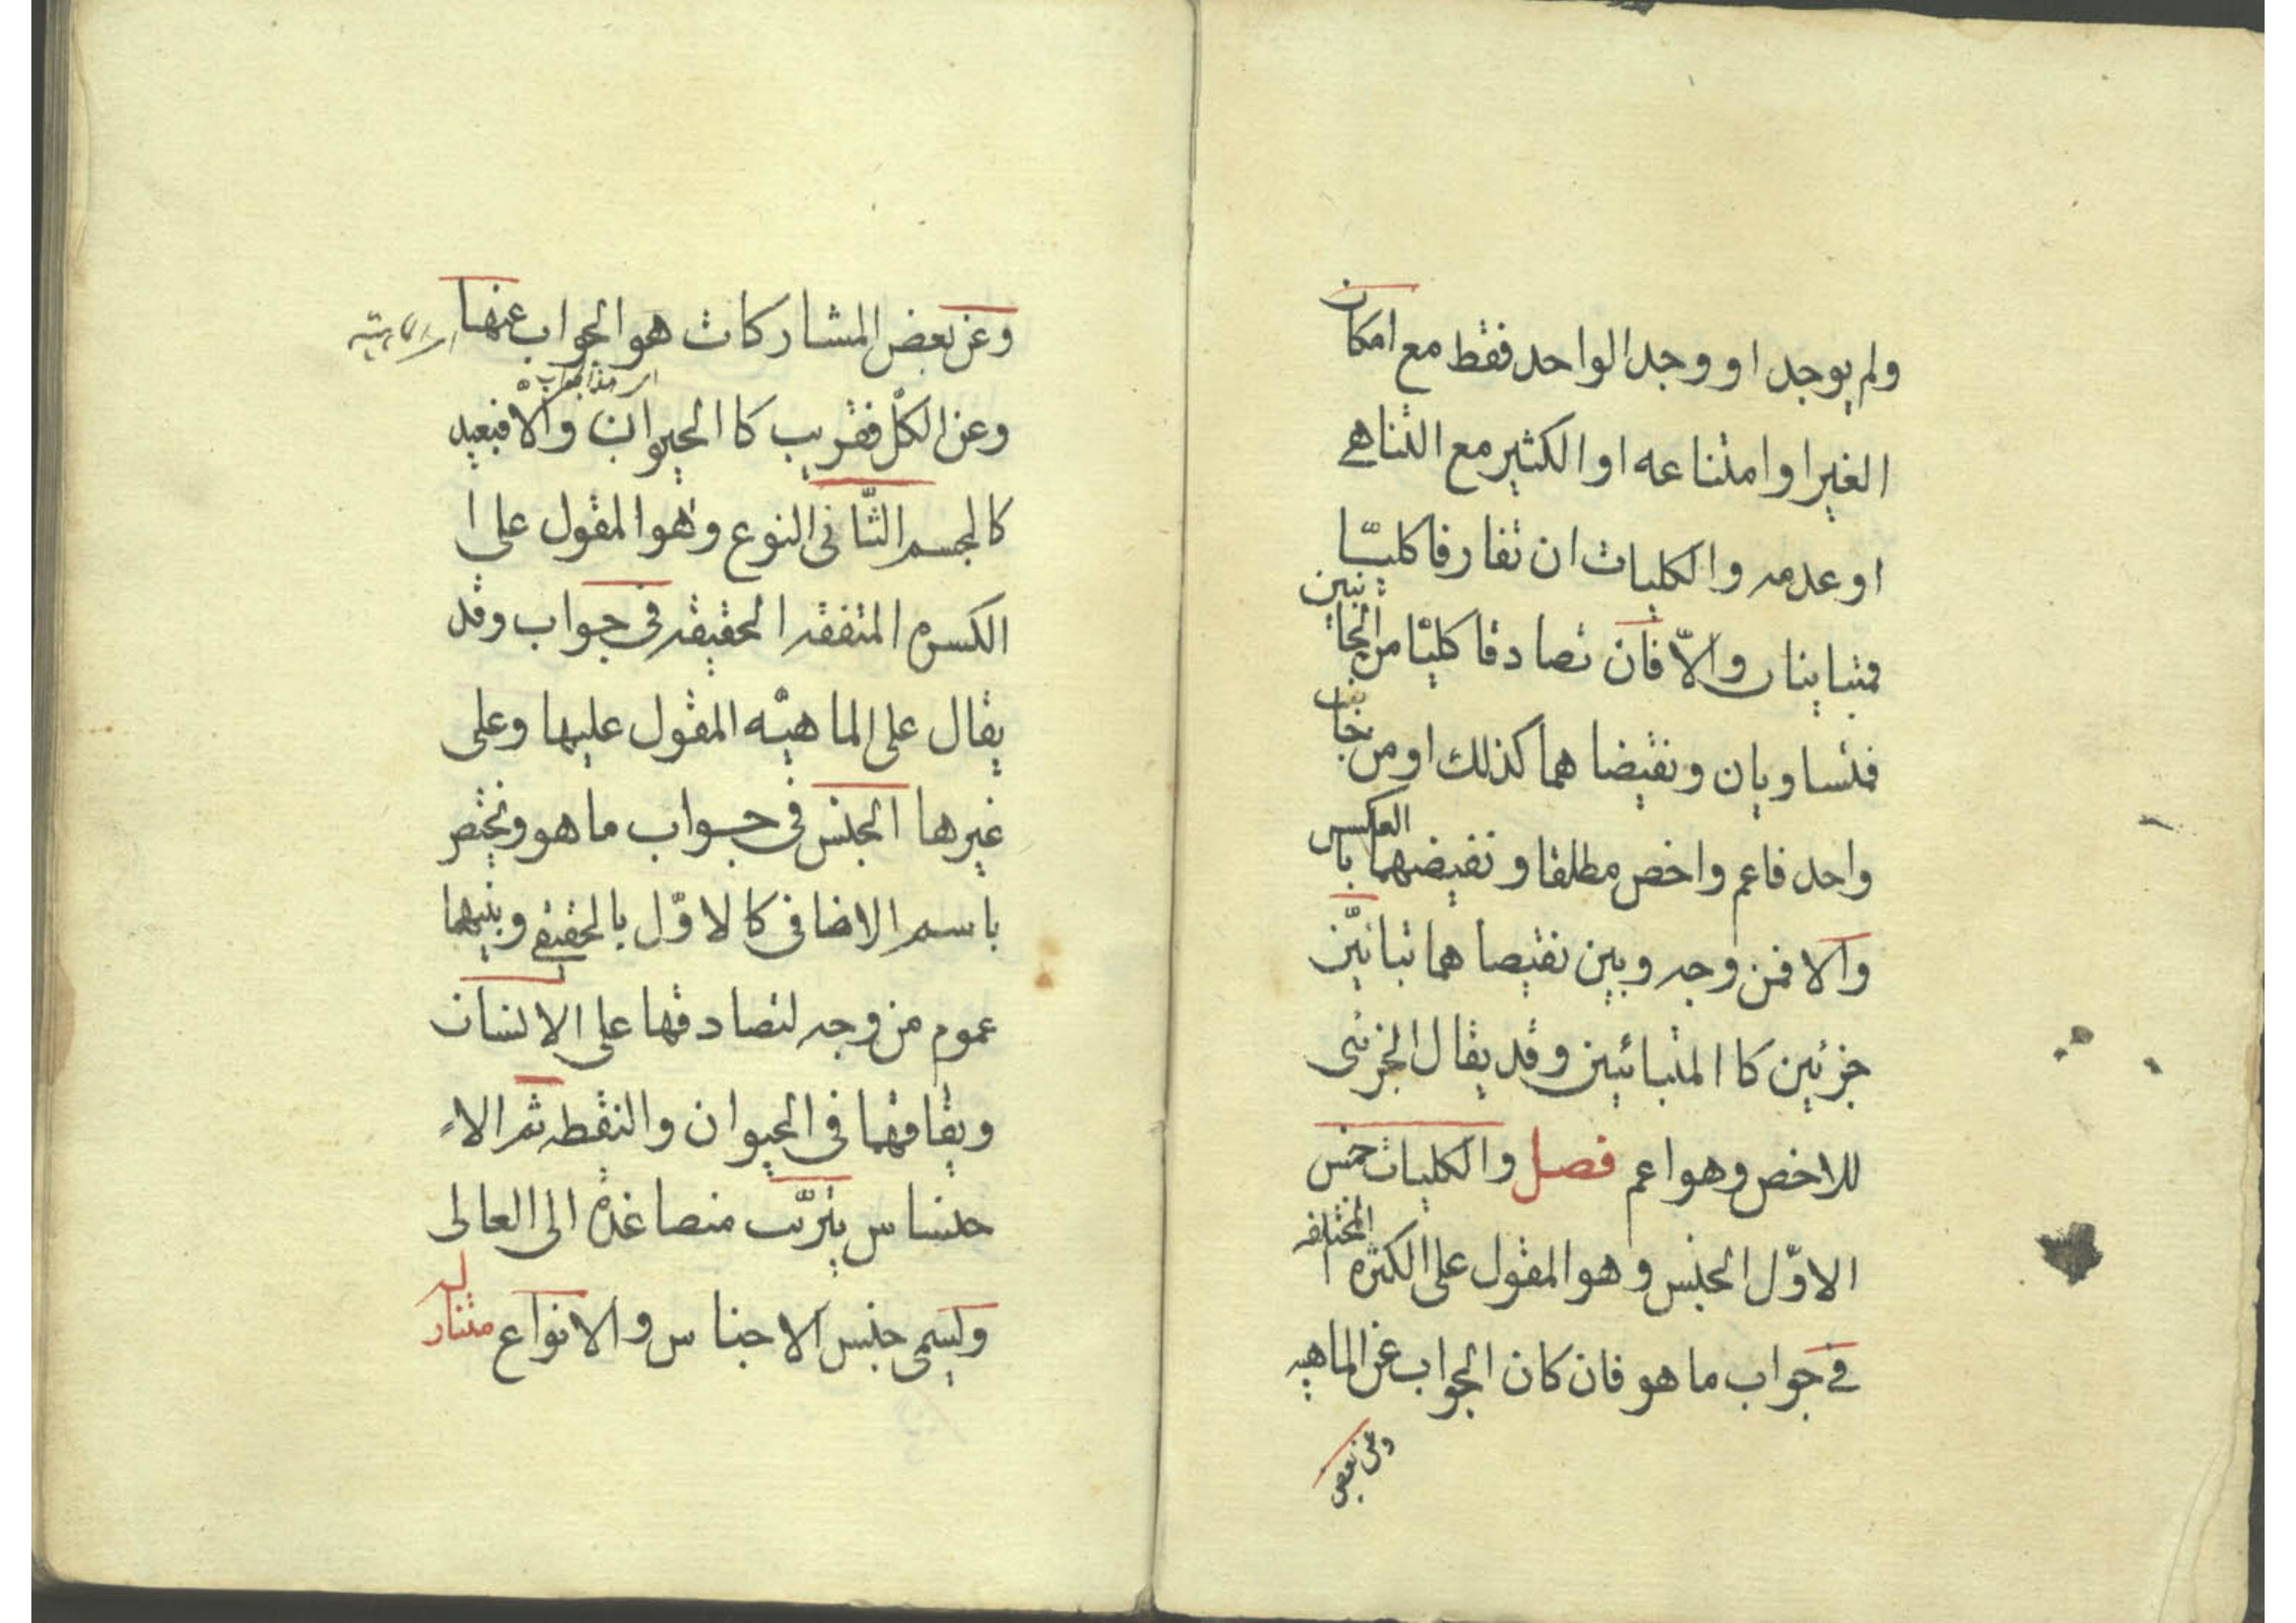 ولم يوجد او وجد الواحد فقط مع امكان
الغير او امتناعه او الكثير مع التناهي
او عدمه والكليات ان تفارقا كليّا
فمتباينان والّا فان تصادقا كليّا من الجانبين
فمتساويان ونقيضا هما كذلك او من جانب
واحد فاعم واخص مطلقا ونقيضهما بالعكس
والا فمن وجه وبين نقيصا هما تباينّ
جزئين كا المتبائنين وقد يقال الجزئى
للاخص وهو اعم فصل والكليات خمس
الاوّل الجنس وهو المقول على الكثرة المختلفه
في جواب ما هو فان كان الجواب عن الماهيه
وعن بعض
وعن بعض المشاركات هو الجواب عنها
وعن الكلّ فقريب كا الحيوان والا فبعيد
كالجسم الثّانى النوع وهو المقول على ا
الكسره المتفقه الحقيقه فى جواب وقد
يقال على الماهيّه المقول عليها وعلى
غيرها الجنس فى جواب ما هو ونختص
باسم الاضافى كا لاوّل بالحقيقي وبينهما
عموم من وجه لتصادقها على الانسان
ويقافهما فى الحيوان والنقطه ثم الا
جنساس يترتّب منصاغده الى العالى
ويسمى جنس الاجناس والانواع متنازله